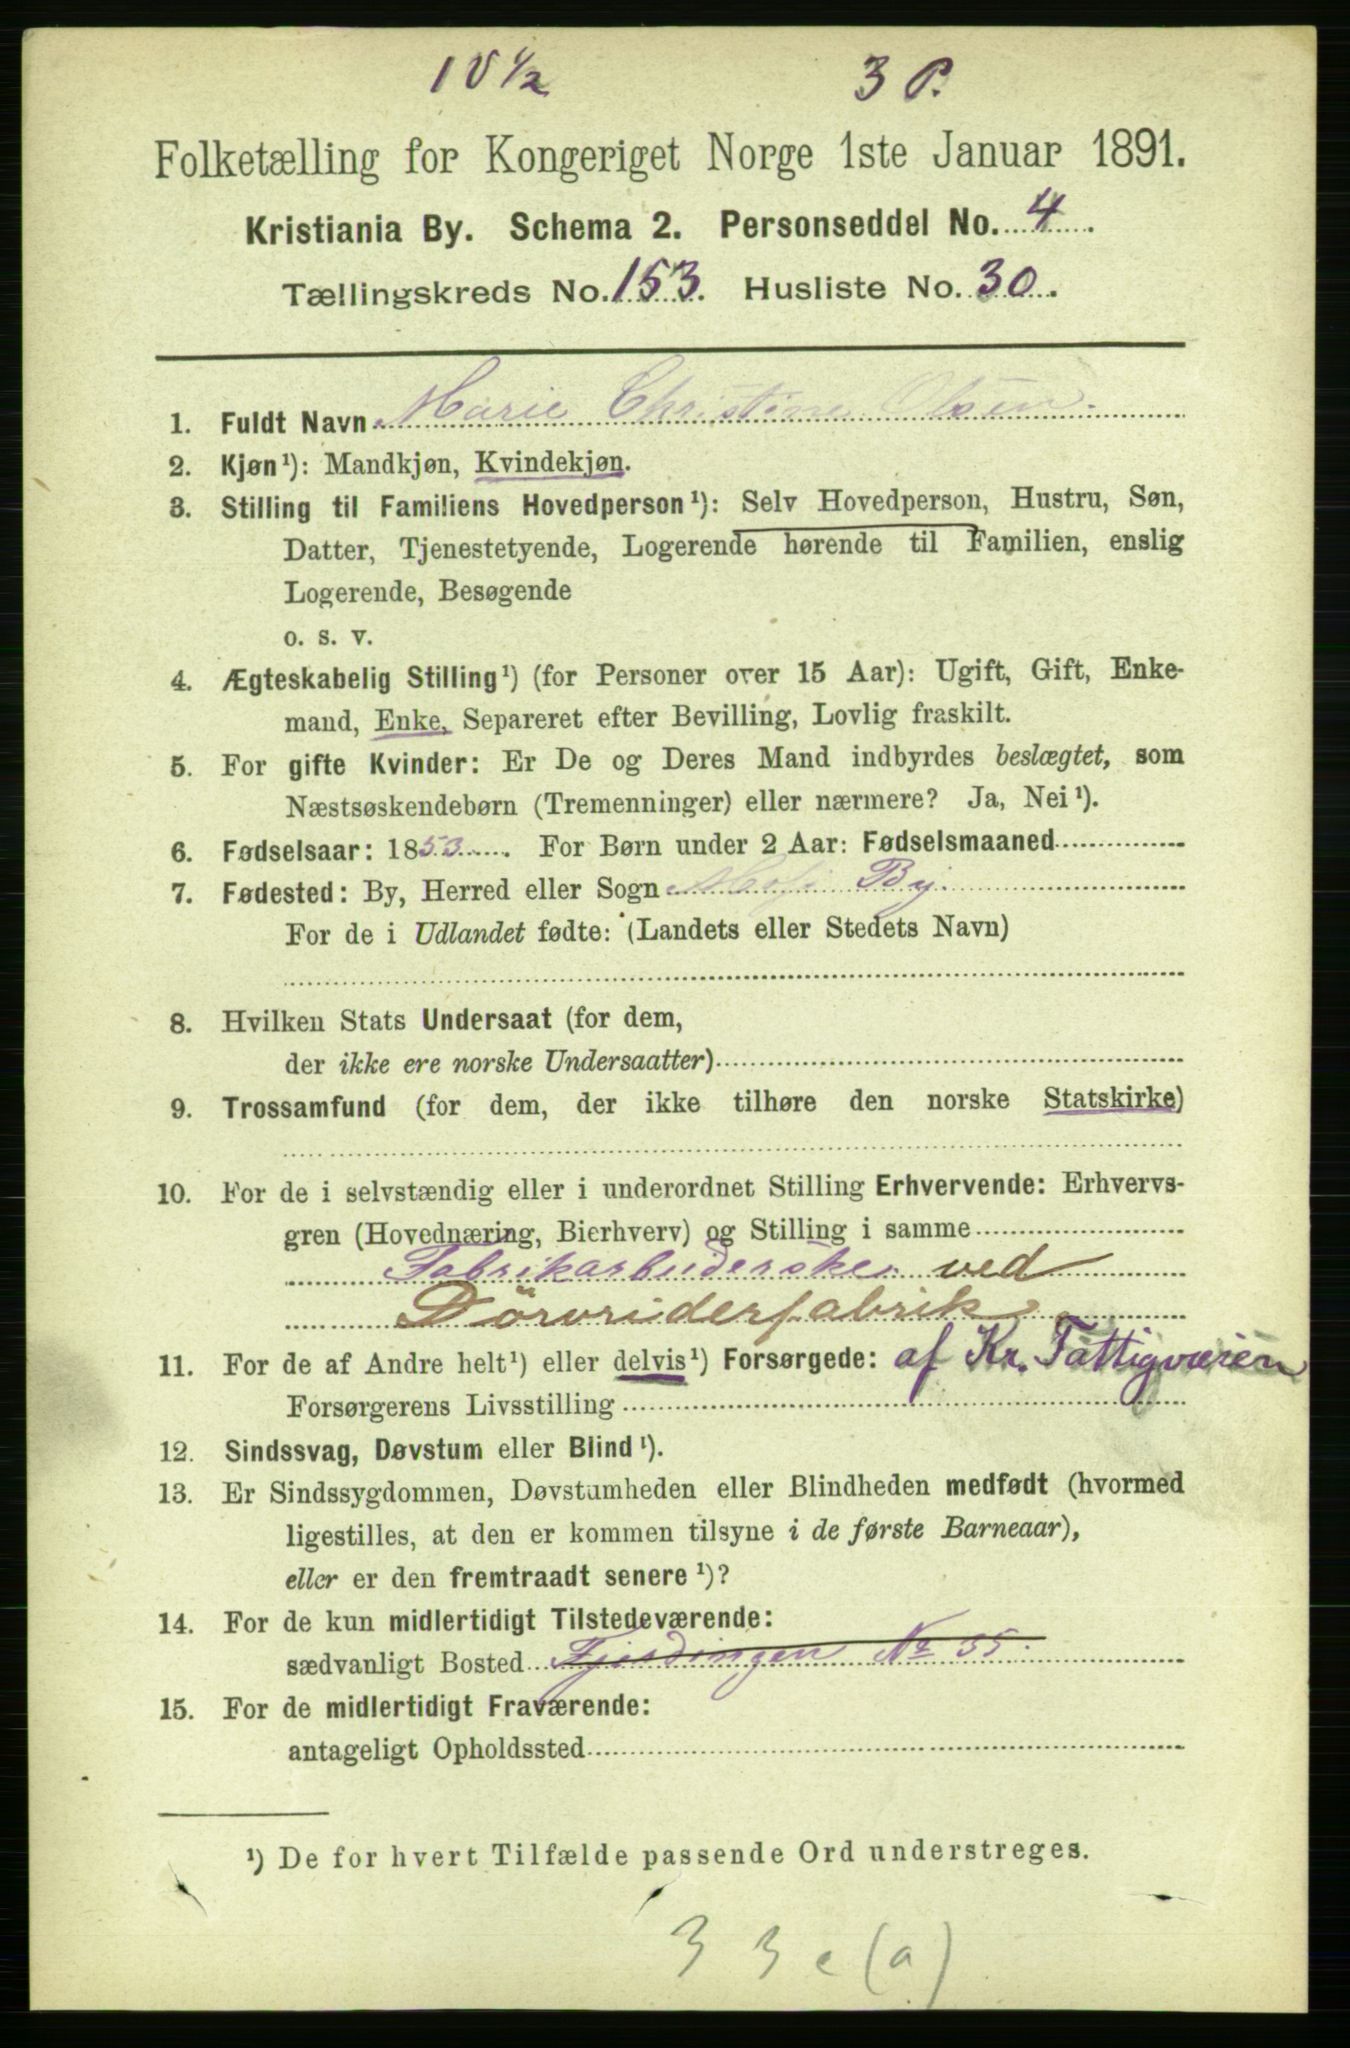 10 1/2 3 P.
Folketælling for Kongeriget Norge 1ste Januar 1891.
Kristiania By. Schema 2. Personseddel No. 4.
Tællingskreds No. 153. Husliste No. 30.
1. Fuldt Navn Marie Christine Olsen.
2. Kjøn¹): Mandkjøn, Kvindekjøn.
3. Stilling til Familiens Hovedperson¹): Selv Hovedperson, Hustru, Søn,
Datter, Tjenestetyende, Logerende hørende til Familien, enslig
Logerende, Besøgende
o. s. v.
4. Ægteskabelig Stilling¹) (for Personer over 15 Aar): Ugift, Gift, Enke-
mand, Enke, Separeret efter Bevilling, Lovlig fraskilt.
5. For gifte Kvinder: Er De og Deres Mand indbyrdes beslægtet, som
Næstsøskendebørn (Tremenninger) eller nærmere? Ja, Nei¹).
6. Fødselsaar: 1853. For Børn under 2 Aar: Fødselsmaaned
7. Fødested: By, Herred eller Sogn By.
For de i Udlandet fødte: (Landets eller Stedets Navn)
8. Hvilken Stats Undersaat (for dem,
der ikke ere norske Undersaatter)
9. Trossamfund (for dem, der ikke tilhøre den norske Statskirke)
10. For de i selvstændig eller i underordnet Stilling Erhvervende: Erhvervs-
gren (Hovednæring, Bierhverv) og Stilling i samme
Fabrikarbeiderske ved
Dörvriderfabrik
11. For de af Andre helt¹) eller delvis¹) Forsørgede: af Kr. Fattigvæsen
Forsørgerens Livsstilling
12. Sindssvag, Døvstum eller Blind¹).
13. Er Sindssygdommen, Døvstumheden eller Blindheden medfødt (hvormed
ligestilles, at den er kommen tilsyne i de første Barneaar),
eller er den fremtraadt senere¹)?
14. For de kun midlertidigt Tilstedeværende:
sædvanligt Bosted Fjerdingen No 35.
15. For de midlertidigt Fraværende:
antageligt Opholdssted
¹) De for hvert Tilfælde passende Ord understreges.
3 3 c (a)